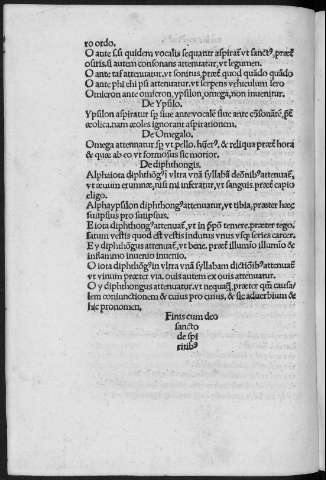 ro ordo.
O ante s.si quidem vocalis sequatur aspirat̃ vt sanctꝰ, præt̃
osiris.si autem consonans attenuatur, vt legumen.
O ante taf attenuatur, vt sonitus, præt̃ quod quãdo quãdo
O ante phi chi psi attenuatur, vt serpens vehiculum sero
Omicron ante omicron, ypsilon, omega, non inuenitur.
De Ypsilo.
Ypsilon aspiratur sp siue ante vocalẽ siue ante cõsonãtẽ, p̃t̃
æolica, nam æoles ignorant aspirationem.
De Omegalo.
Omega attenuatur sp vt pello. hũerꝰ, & reliqua præt̃ hora
& quæ ab eo vt formosus sic morior.
De diphthongis.
Alphaiota diphthõgꝰ ĩ vltra vnã syllabã deõnibꝰ attenuat̃,
vt æuum erumnæ, nisi mi inferatur, vt sanguis. præt̃ capio
eligo.
Alphaypsilon diphthongꝰ attenuatur, vt tibia, præter hæc
suipsius pro suiipsius.
Ei iota diphthongꝰ attenuat̃, vt in p̃põ temere. præter tego,
fatum vestis quod est vestis indutus vnus vsqꝫ series carcer.
E y diphthõgus attenuat̃, vt bene. præt̃ illumio illumio &
inflammo inuenio inuenio.
O iota diphthõgꝰ in vltra vnã syllabam dictiõibꝰ attenuat̃
vt vinum præter via. ouis autem ex ouis attenuatur.
O y diphthongus attenuatur, vt nequaq̃, præter qm̃ causa/
lem coniunctionem & cuius pro cuius, & sic aduerbium &
hic pronomen.
Finis cum deo
sancto
de spi
ritibꝰ